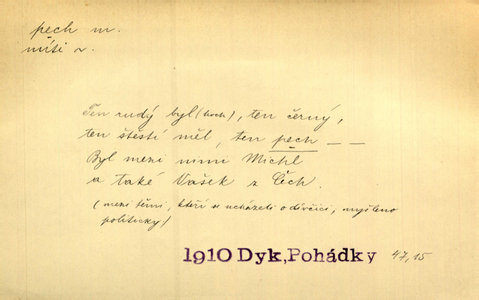 pech m.
míti v.
Ten rudý byl (hoch), ten černý,
ten štěstí měl, ten pech — —
Byl mezi nimi Michl
a také Vašek z Čech.
(mezi těmi, kteří se ucházeli o děvčici, myšleno
politicky)
1910 Dyk, Pohádky 47,15